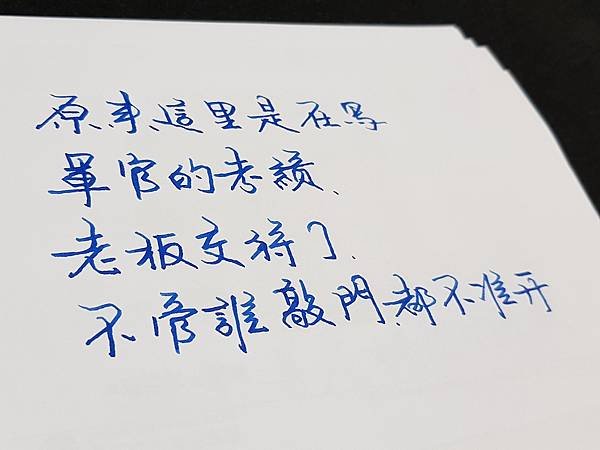 原来這里是在写
軍官的考績、
老板交待了、
不管誰敲門都不准开